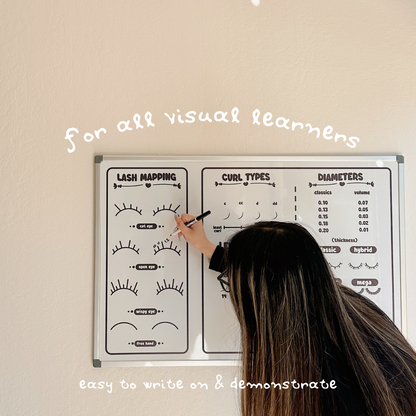 for all visual learners
LASH MAPPING
cat eye
open eye
wispy eye
free hand
CURL TYPES
DIAMETERS
classics volume
0.10 0.07
0.13 0.05
0.15 0.03
0.18 0.02
0.20 0.01
(thickness)
lassic hybrid
mega
easy to write on & demonstrate